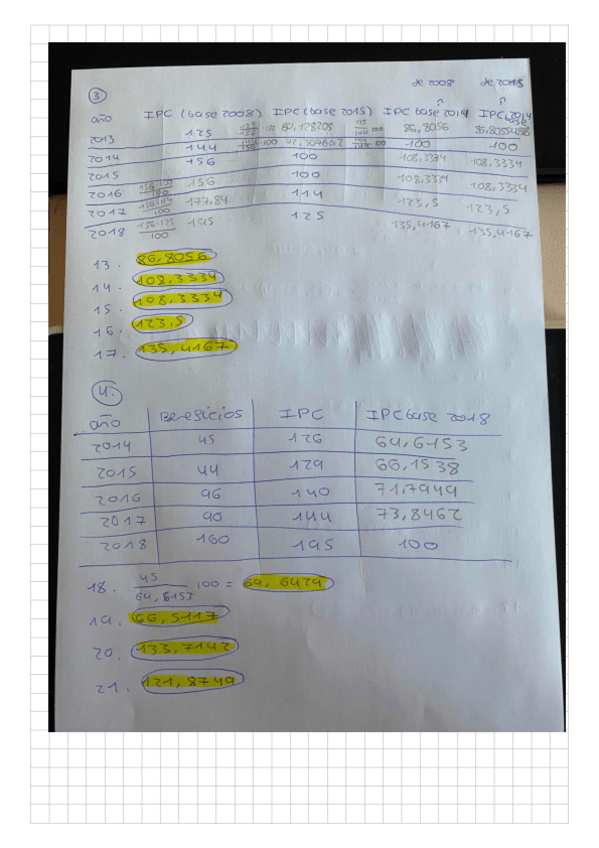 3
de 2008 de 2015
año IPC (base 2008) IPC (base 2015) IPC base 2014 IPC base 2014
2013 125 ·100 80,128205 ·100 86,8056 86,8055488
2014 144 ·100 92,307692 100 100
2015 156 100 108,3334 108,3334
2016 156·100/100 156 100 108,3334 108,3334
2017 156·114/100 177,84 114 123,5 123,5
2018 156·125/100 195 125 135,4167 135,4167
13. 86,8056
14. 108,3334
15. 108,3334
16. 123,5
17. 135,4167
4.
año Beneficios IPC IPC base 2018
2014 45 126 64,6153
2015 44 129 66,1538
2016 96 140 71,7949
2017 90 144 73,8462
2018 160 195 100
18. 45/64,6153 100 = 69,6429
19. 66,5117
20. 133,7142
21. 121,8749